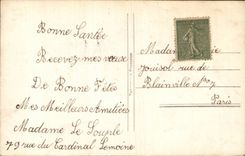 Bonne Santée
Recevez mes vœux
De Bonne Fêtes
Mes Meilleurs Amitiées
Madame Le Souple
79 rue du Cardinal Lemoine
Madame
rue de
Blainville No 7
Paris